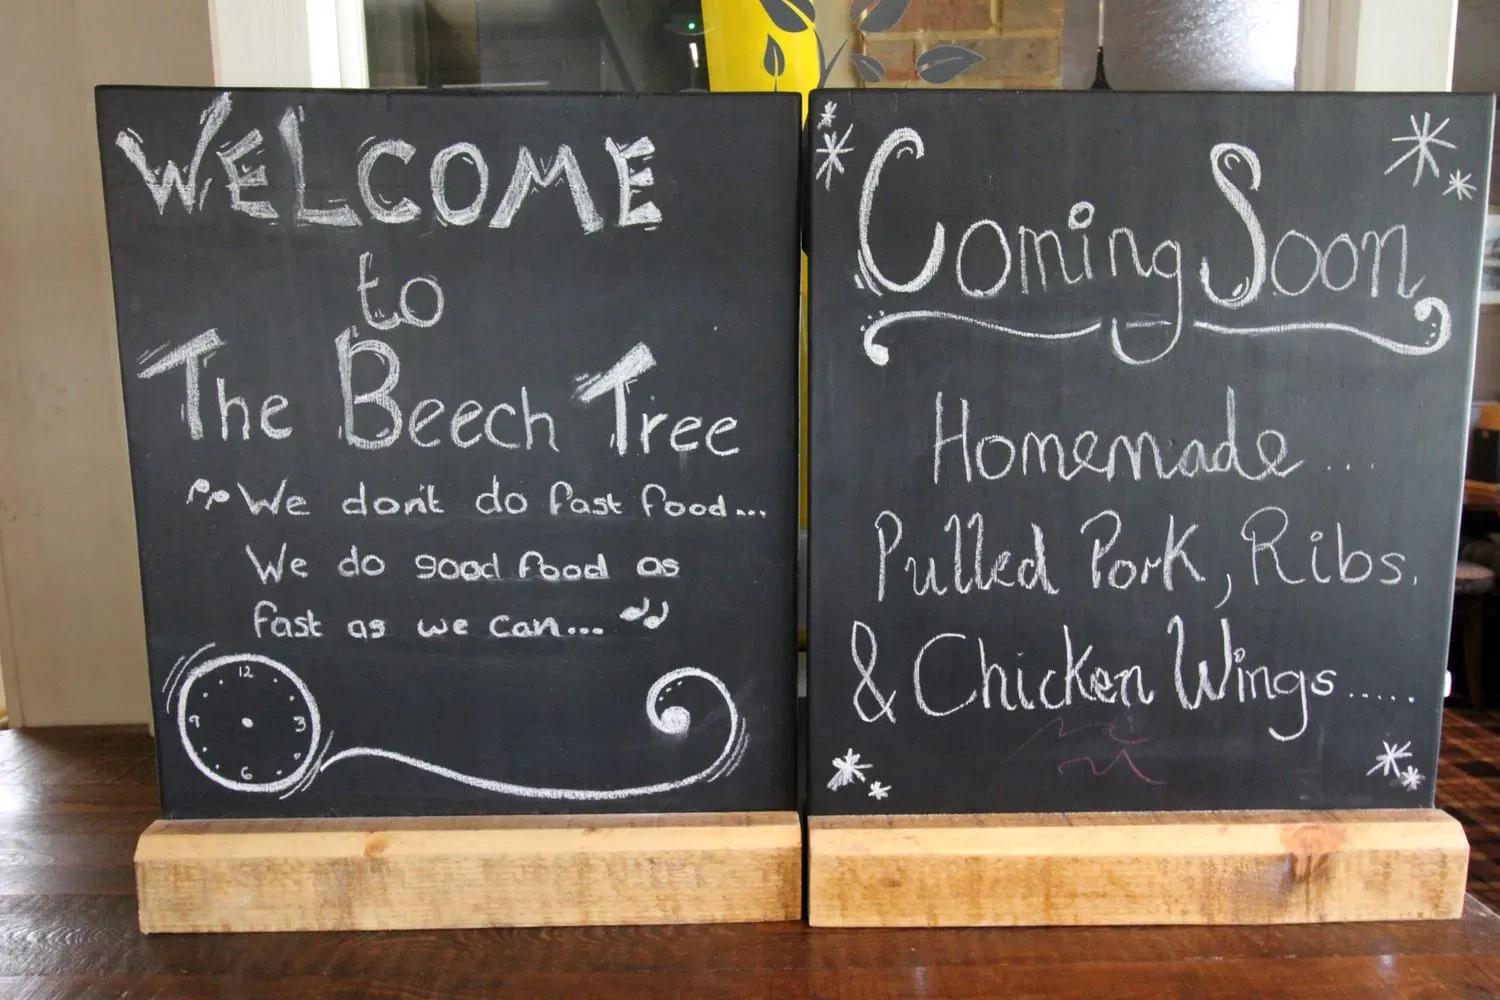 WELCOME
to
The Beech Tree
We don't do fast food...
We do good food as
fast as we can...
12
9 3
6
Coming Soon
Homemade ...
Pulled Pork, Ribs,
& Chicken Wings.....